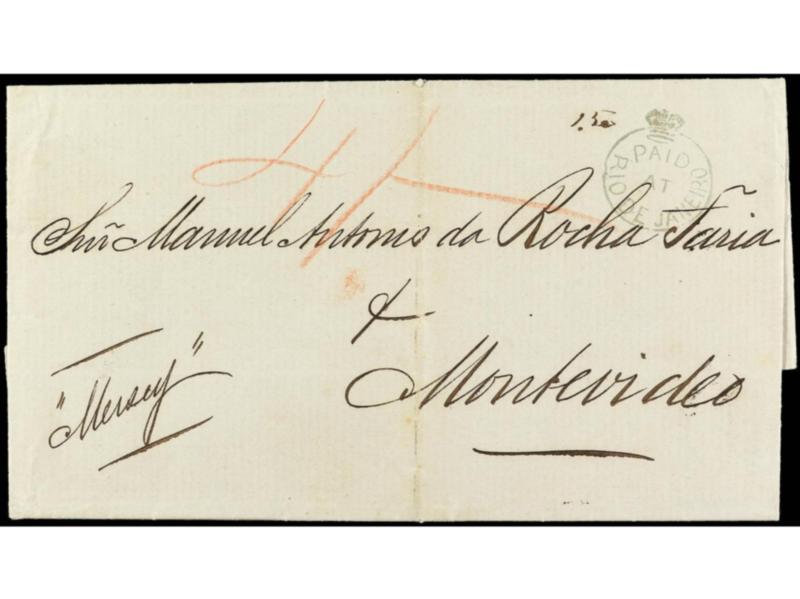 PAID
AT
RIO DE JANEIRO
Snr̃ Manuel Antonio da Rocha Faria
Montevideo
"Mersey"